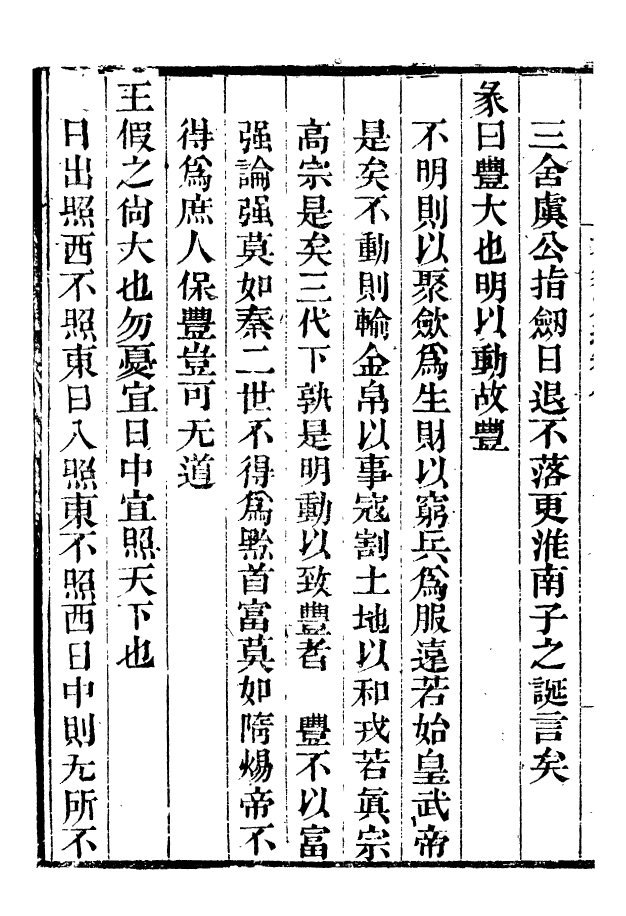 三舍虞公指劒日退不落更淮南子之誕言矣
彖曰豐大也明以動故豐
不明則以聚歛爲生財以窮兵爲服遠若始皇武帝
是矣不動則輸金帛以事寇割土地以和戎若眞宗
高宗是矣三代下孰是明動以致豐者　豐不以富
强論强莫如秦二世不得爲黔首富莫如隋煬帝不
得爲庶人保豐豈可无道
王假之尙大也勿憂宜日中宜照天下也
日出照西不照東日入照東不照西日中則无所不